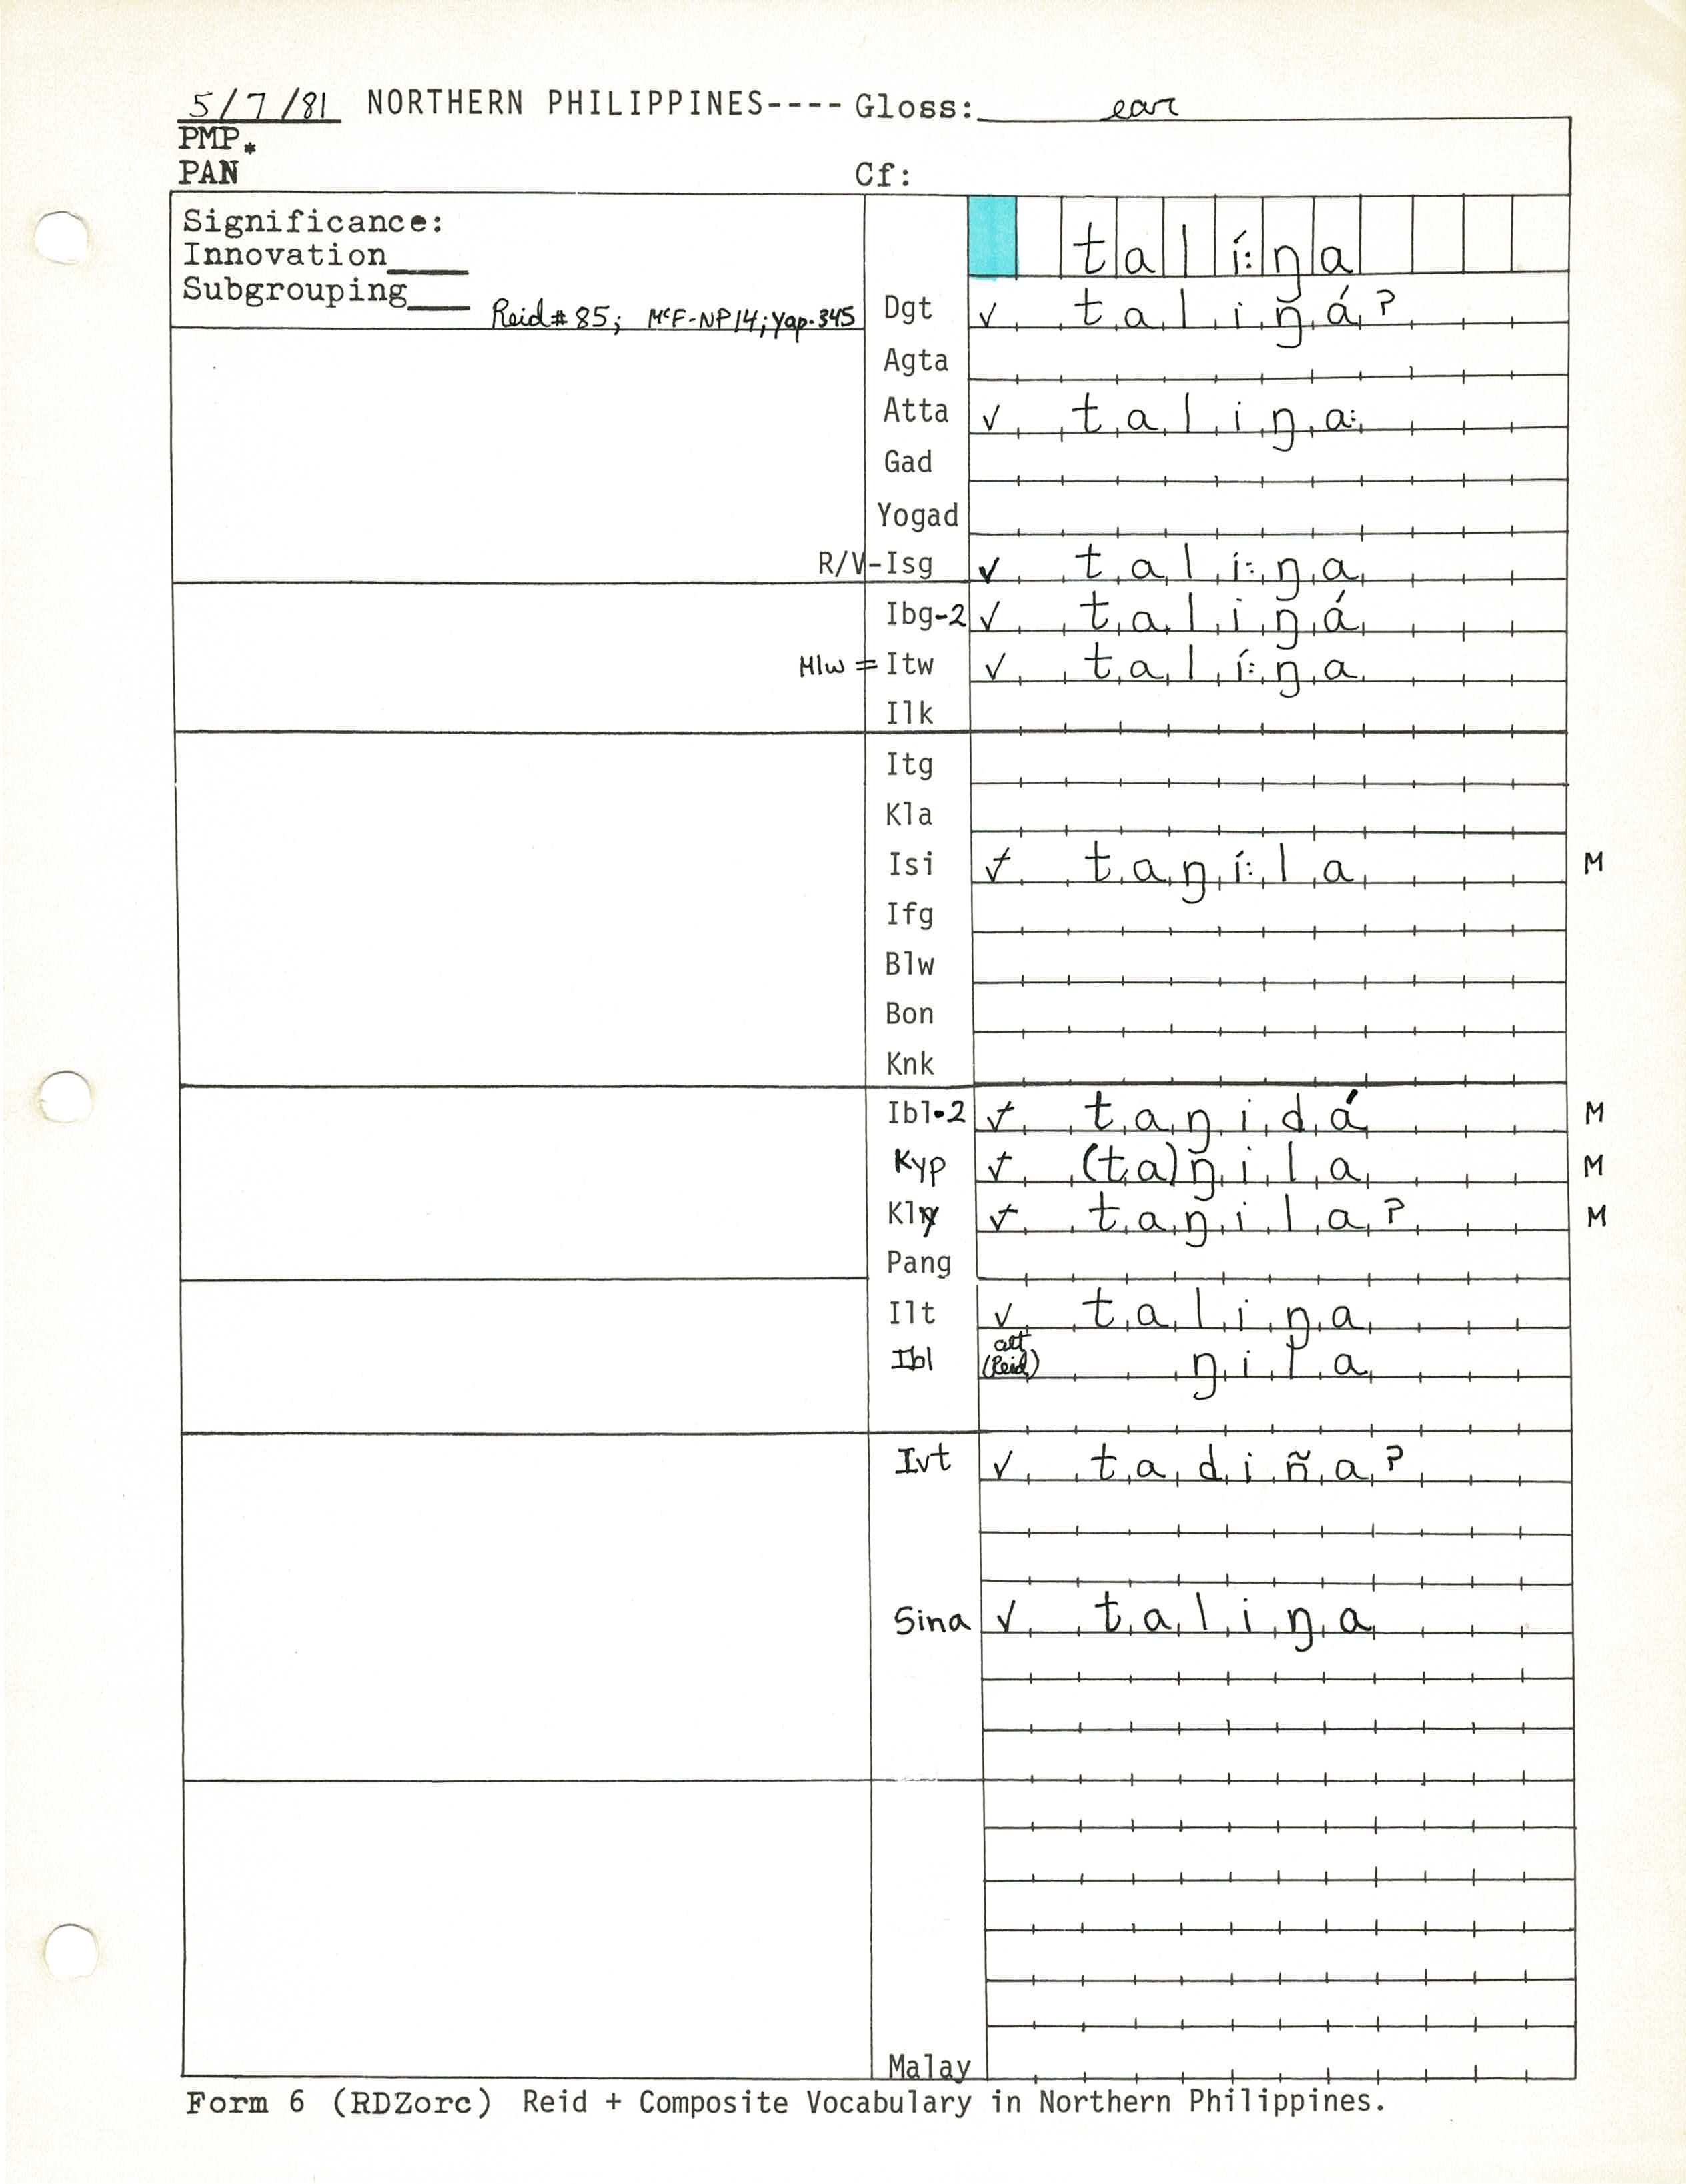 5/7/81 NORTHERN PHILIPPINES---- Gloss: ear
PMP*
PAN Cf:
Significance:
Innovation____
Subgrouping____ Reid#85; McF-NP14; Yap-345
t a l í: ŋ a
Dgt ✓ t a l i ŋ á ?
Agta
Atta ✓ t a l i ŋ a:
Gad
Yogad
R/V-Isg ✓ t a l í: ŋ a
Ibg-2 ✓ t a l i ŋ á
Mlw = Itw ✓ t a l í: ŋ a
Ilk
Itg
Kla
Isi ✓ t a ŋ í: l a M
Ifg
Blw
Bon
Knk
Ibl-2 ✓ t a ŋ i d á M
Kyp ✓ (t a) ŋ i l a M
Kly ✓ t a ŋ i l a ? M
Pang
Ilt ✓ t a l i ŋ a
Ibl alt (Reid) ŋ i l a
Ivt ✓ t a d i ñ a ?
Sina ✓ t a l i ŋ a
Malay
Form 6 (RDZorc) Reid + Composite Vocabulary in Northern Philippines.